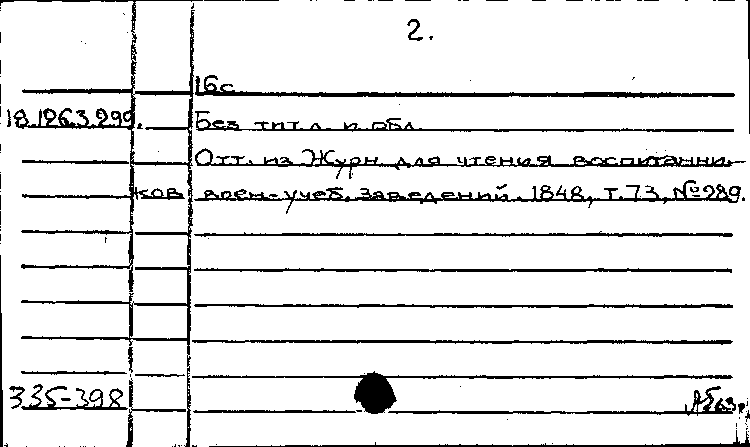 2.
16с
18.126.3.299. Без тит.л. и обл.
Отт. из Журн. для чтения воспитанни-
ков воен.-учеб. заведений. 1848, т.73, №289.
335-398